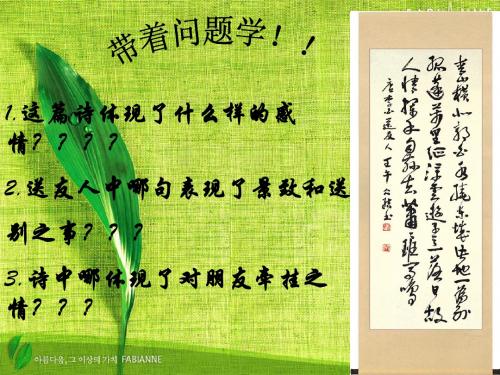 带着问题学！！
1.这篇诗体现了什么样的感
情？？？？
2.送友人中哪句表现了景致和送
别之事？？？
3.诗中哪体现了对朋友牵挂之
情？？？
青山横北郭白水绕东城此地一为别
孤蓬万里征浮云游子意落日故
人情挥手自兹去萧班马鸣
唐李白送友人
아름다움, 그 이상의 가치 FABIANNE